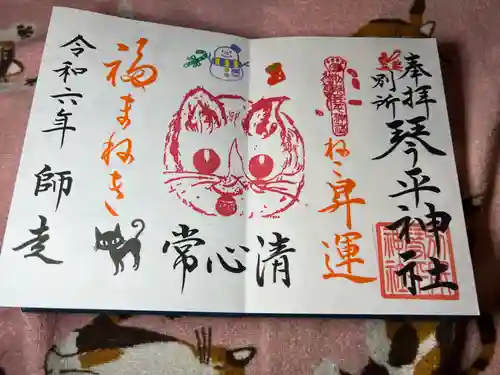 奉拝
別所
琴平神社
ねこ昇運
常心清
福まねき
令和六年
師走